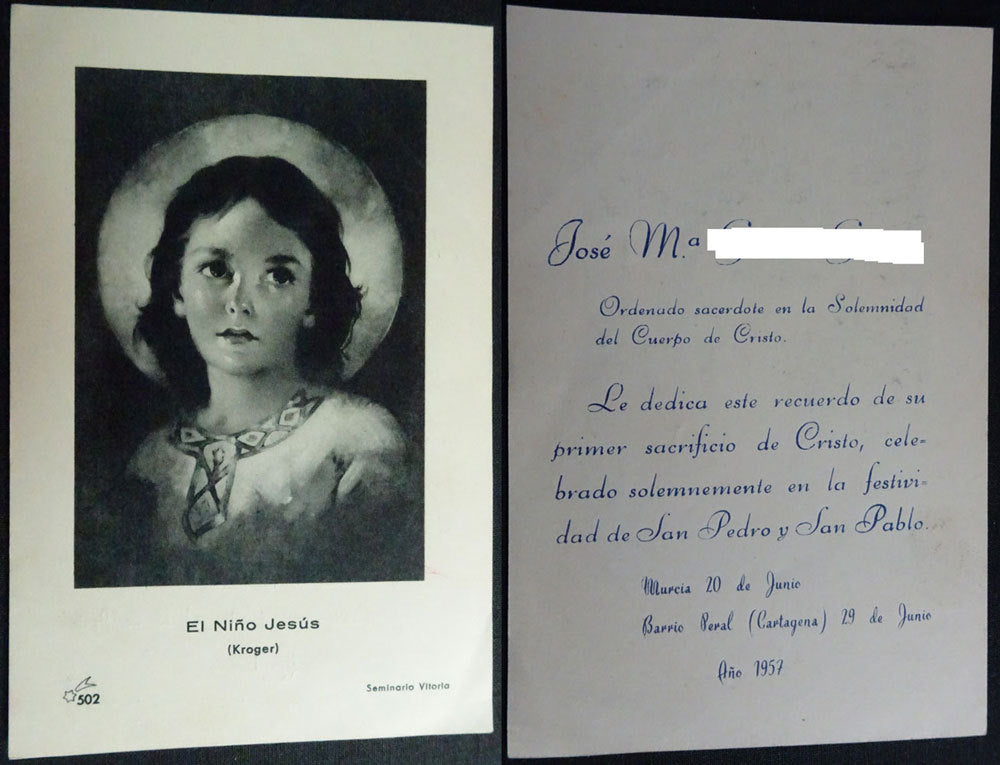 El Niño Jesús
(Kroger)
502
Seminario Vitoria
José M.ª
Ordenado sacerdote en la Solemnidad
del Cuerpo de Cristo.
Le dedica este recuerdo de su
primer sacrificio de Cristo, cele-
brado solemnemente en la festivi-
dad de San Pedro y San Pablo.
Murcia 20 de Junio
Barrio Peral (Cartagena) 29 de Junio
Año 1957